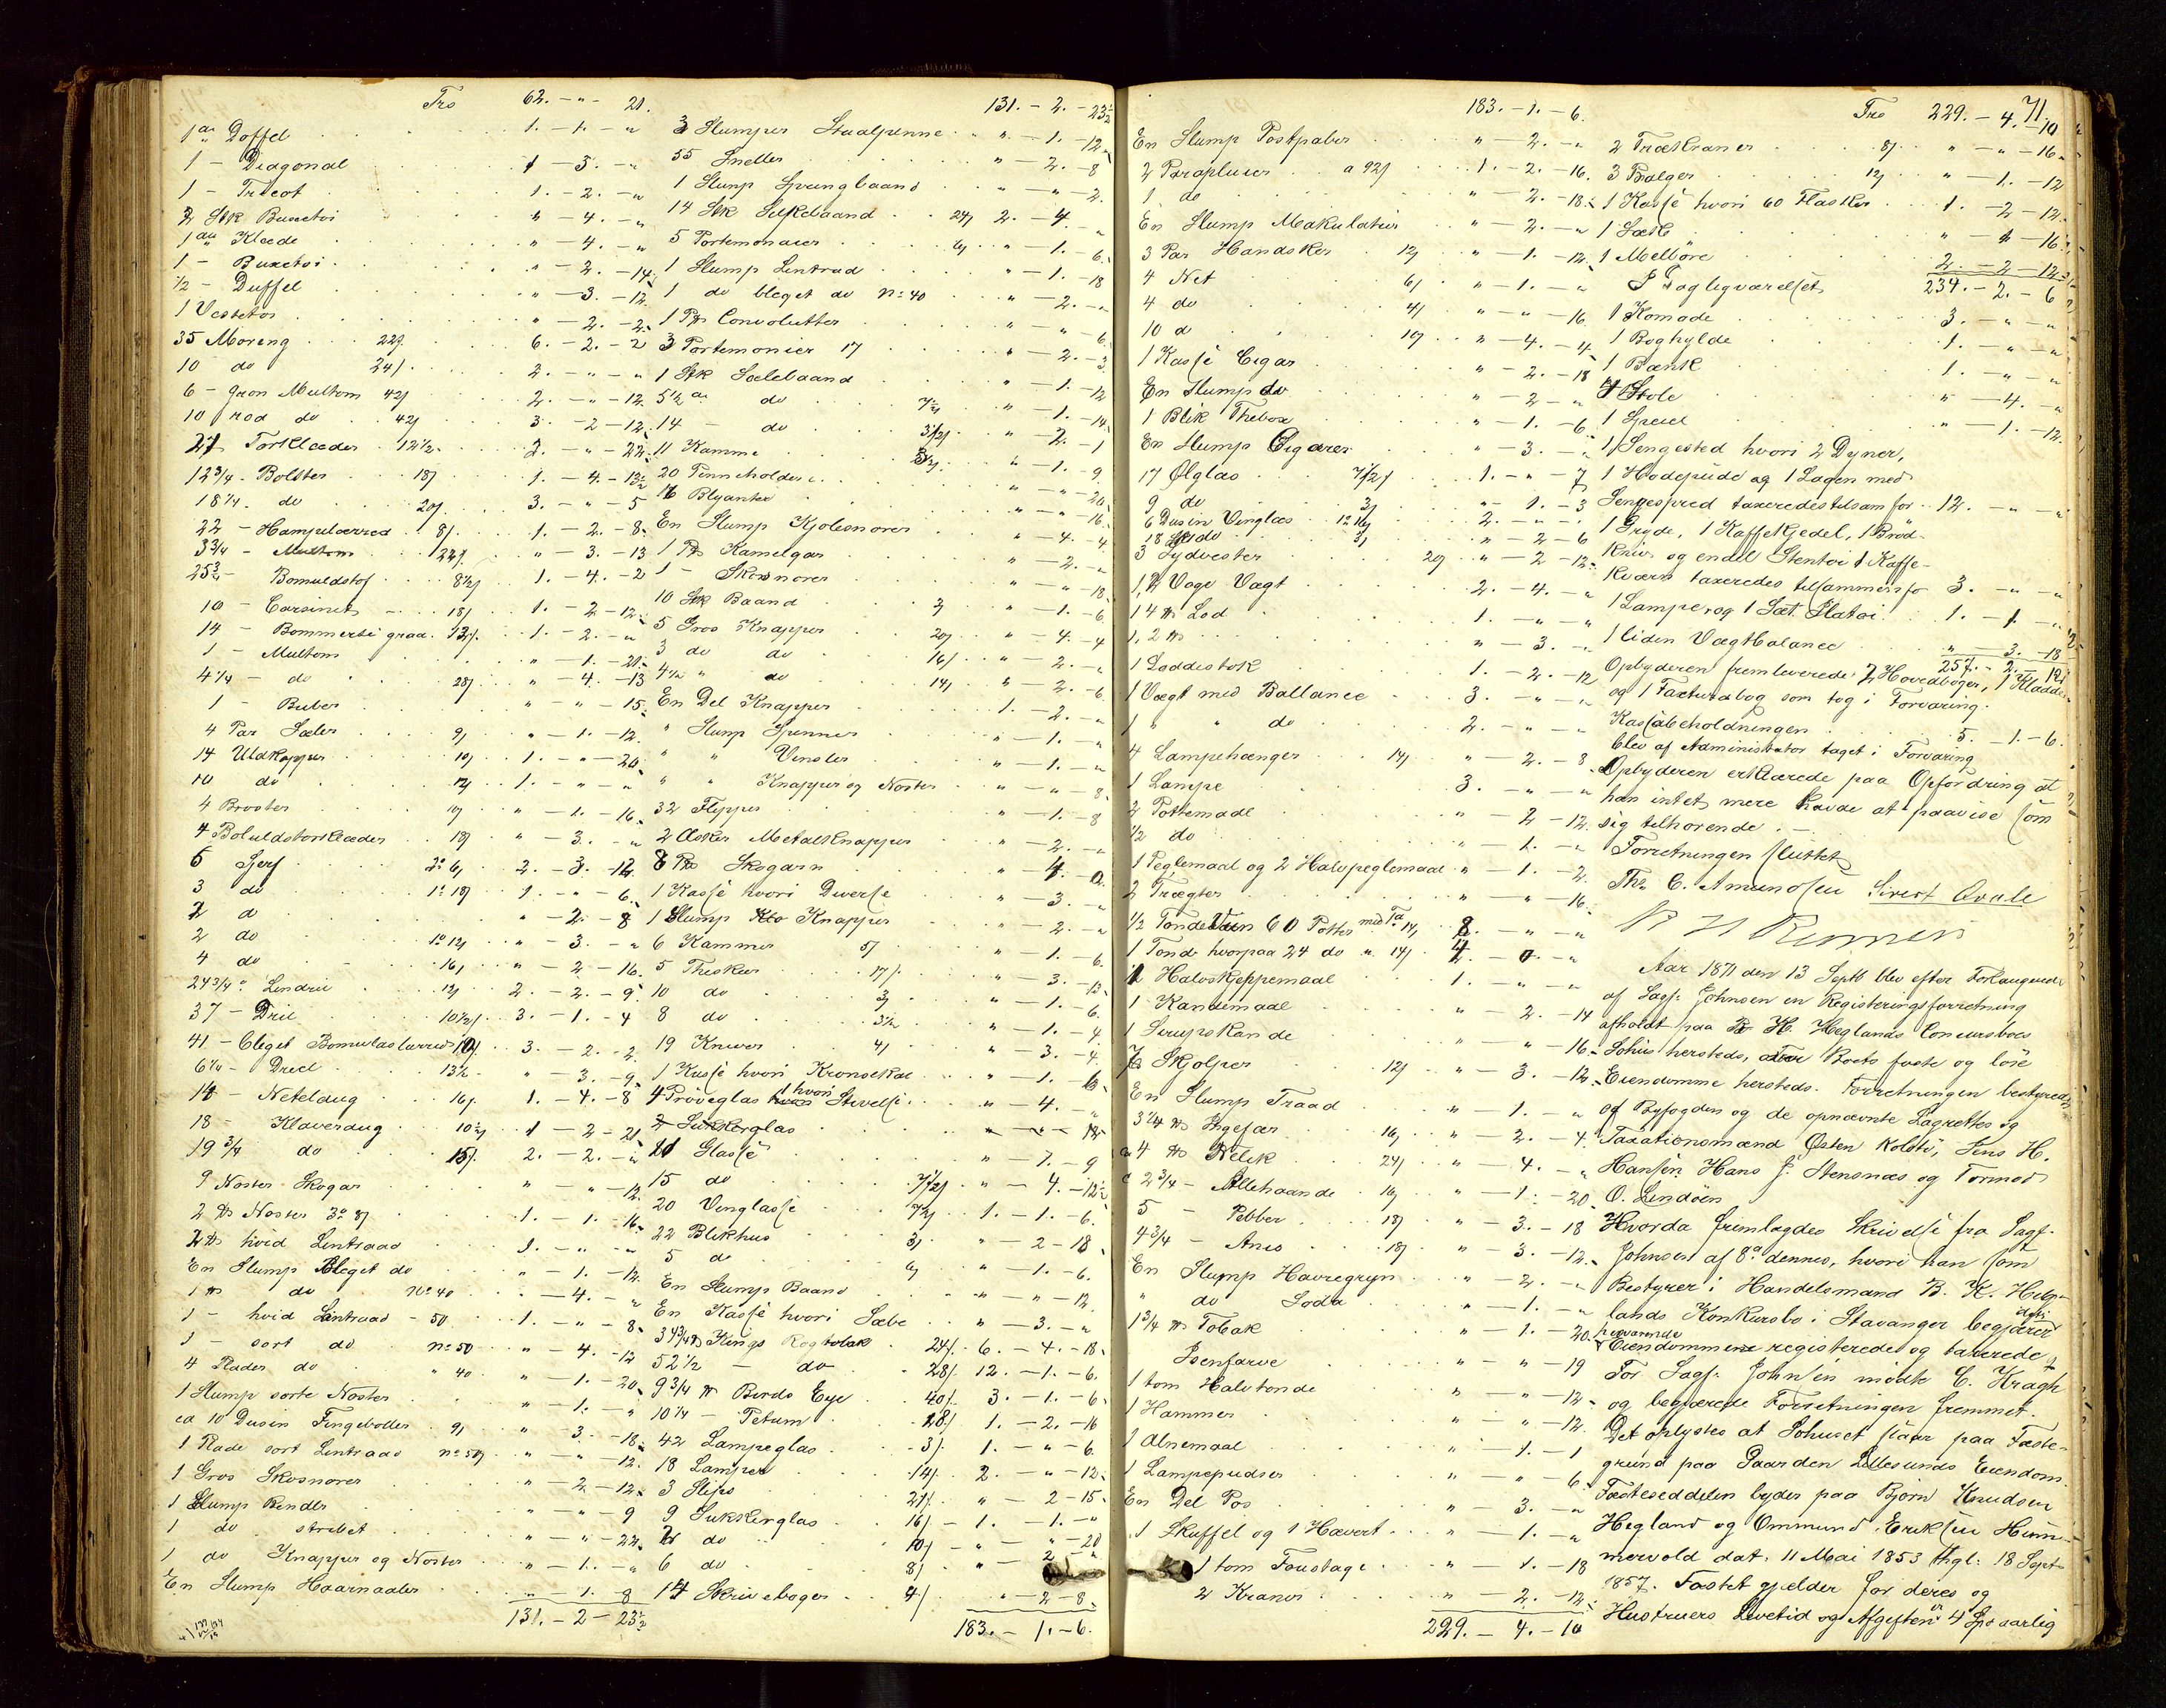 Tro 62. - " - 21.
1 al Doffel . . . 1. - 1. - "
1 - Diagonal . . . 1 - 3. - "
1 - Tricot . . . 1. - 2. - "
2 Stk Buxetøi . . . " - 4. - "
1 al Klæde . . . " - 4. - "
1 - Buxetøi . . . " - 2. - 14.
1/2 - Duffel . . . " - 3. - 12.
1 Vestetøi . . . " - 2. - 2.
35 Moreng . . . 22 ß. 6. - 2. - 2
10 do 24 ß. 2. - " - "
6 - grøn Multom 42 ß 2. - " - 12.
10 rød do . 42 ß 3. - 2 - 12.
27 Tørklæder . 12 1/2. 2. - " - 22.
12 3/4 - Bolster . 18 ß 1. - 4. - 13 1/2
18 1/4. do . 20 ß 3. - " - 5
22 - Hampelærred . 8 ß. 1. - 2. - 8.
3 3/4 - Multom . 22 ß. " - 3. - 13
25 3/4 - Bomuldstøf . 8 1/2 ß 1. - 4. - 2
10 - Carsinet . 18 ß 1. - 2. - 12.
14 - Bommersi graa. 12 ß. 1. - 2. - "
1 - Multom . . . " - 1. - 21.
4 1/4 - do . 28 ß " - 4. - 13
1 - Buber . . . " - " - 15.
4 Par Sæler . 9 ß " - 1. - 12.
14 Uldkapper . 10 ß 1. - " - 20.
10 do . 12 ß 1. - " - "
4 Broster . 10 ß " - 1. - 16.
4 Boluldstørklæder . 18 ß " - 3. - "
5 Serf . 2 o 6 ß 2. - 3. - 12.
3 do . 1 o 18 ß 1. - " - 6.
2 d . " - 2. - 8
2 do . 1 o 12 ß " - 3. - "
4 do . 16 ß " - 2. - 16.
24 3/4 " Lendrii . 12 ß 2. - 2. - 9.
37 - Dril . 10 1/2 ß 3. - 1. - 4
41 - bleget Bomuldslærred 10 ß. 3. - 2. - 2.
6 1/4 - Dreel . 13 1/2. " - 3. - 9.
14 - Neteldug . 16 ß. 1. - 4. - 8
18 - Klaverdug . 10 1/2 ß 1 - 2 - 21
19 3/4 do . 15 ß. 2. - 2. - "
9 Nøster Skogar . . . " - " - 12
2 ℔ Nøster 3 o 8 ß . . . 1. - 1. - 16.
2 ℔ hvid Lintraad . . . 1. - " - "
En Slump Bleget do . . . " - 1. - 12.
1 ℔ do No 40 . . . " - 4. - "
1 - hvid Lintraad - 50. 1. - " - 8.
1 - sort do No 50 " - 4. - 12
4 Plader do " 40 " - 1. - 20.
1 Slump sorte Nøster . . . " - 1. - "
ca 10 Dusin Fingebøller . 9 ß " 3. - 18.
1 Plade sort Lintraad No 50 . " - " - 12.
1 Gros Skosnorer . . . " - 2. - 12.
1 Slump Bendler . . . " - " - 9
1 do strebet . . . " - " - 22.
1 do Knapper og Nøster . . " - 1. - "
En Slump Haarnaaler . . . " - 1. - 8
131. - 2 - 23 1/2
131. - 2. - 23 1/2
3 Slumper Staalpenne . . " - 1. - 12.
55 Sneller . . . " - 2. - 8
1 Slump Sprungbaand . . . " - " - 2.
14 Stk Silkebaand . . 24 ß 2. - 4. "
5 Portemonaier . . 6 ß " - 1. - 6.
1 Slump Lintrad . . . " - 1. - 18
1 do bleget do No 40 . . " - 2. - "
1 Ps Convolutter . . . " - " - 6.
3 Portemonier 17 . . . " - 2. - 3
1 Stk Sælebaand . . . " - 1. - 12
5 1/2 al do . 7 1/2 ß " - 1. - 14.
14 - do . 3 1/2 ß " - 2. - 1
11 Kamme . 3 ß. " - 1. - 9
20 Penneholdere . . . " - " - 20
16 Blyanter . . . " - " - 16.
En Slump Kjolesnorer . . " - 4. - 4
1 Ps Kamelgar . . . " - 2. - "
1 - Skosnorer . . . " - " - 18
10 Stk Baand . 3 ß " - 1. - 6
5 Gros Knapper . 20 ß " - 4. - 4
3 do do . 16 ß " - 2. - "
4 1/2 " do . 14 ß " - 2. - 6
En Del Knapper . . . 1. - 2. - "
" Slump Spenner . . . " - 1. - "
" " Vinsler . . . " - 1. - "
" " Knapper og Nøster . . " - " - 8.
32 Flipper . . . " - 1. - 8
2 Æsker Metalknapper . . " - 2. - "
8 Ps Skogarn . . . " 4. - 0
1 Kasse hvori Diverse . . " - 3. - "
1 Slump Knapper . . . " - 2. - "
6 Kammer . 5 ß " - 1. - 6.
5 Theskeer . 17 ß. " - 3. - 13.
10 do . 3 ß " - 1. - 6.
8 do . 3 1/2 " - 1. - 4
19 Kniver . 4 ß " - 3. - 4.
1 Kasse hvori Kronsekal . . " - 1. - 6.
4 Prøveglas hvori Stivelse . . " - 4. - "
2 Sukkerglas . . . " - " - 12
21 Glasse . . . " - 7. - 9
15 do . 7 1/2 ß " - 4. - 12 1/2
20 Vinglasse . 7 1/2 ß 1. - 1. - 6.
22 Blikhus . 3 ß " - 2 - 18.
5 d . 6 ß " - 1. - 6.
En Slump Baand . . " - " - 12.
En Kasse hvori Sæbe . . " - 3. - "
34 3/4 ℔ Kings Røgtobak . 24 ß. 6. - 4. - 18.
52 1/2 - do . 28 ß. 12. - 1. - 6.
9 3/4 ℔ Birds Eye . 40 ß. 3. - 1. - 6
10 1/4 - Petum . 18 ß. 1. - 2. - 16
42 Lampeglas . 3 ß. 1. - " - 6.
18 Lamper . 14 ß. 2. - " - 12.
3 Slips . 21 ß. " - 2 - 15.
9 Sukkerglas . 16 ß - 1. - 1. - "
2 do . 10 ß - " - " - 20
6 do . 8 ß " - 2 - "
14 Skrivebøger . . 4 ß. " - 2 - 8.
183. - 1. - 6.
183. - 1. - 6.
En Slump Postpaber . . " - 2. - "
2 Parapluier . a 92 ß 1. - 2. - 16.
1 do . . . " 2. - 18.
En Slump Makulatur . . " - 2. - "
3 Par Handsker . 12 ß " - 1. - 12.
4 Net 6 ß " - 1. - "
4 do 4 ß " - " - 16
10 d . 10 ß " - 4. - 4.
1 Kasse Cigar . . . " - 2. - 18
En Slump do . . . " - 2 - "
1 Blik Thebox . . . " - 1. - 6
En Slump Cigarer . . . " - 3. - "
17 Ølglas . 7 1/2 ß 1. - " - 7
9 do . 3 ß " 1. - 3
6 Dusin Vinglas . 12 ß 2. - " - "
18 do . 3 ß " - 2 - 6
3 Sydvester . 20 ß " - 2 - 12.
1, 2 Voge Vægt . . . 2. - 4. - "
1 4 ℔ Lod . . . 1. - " - "
1, 2 ℔ . . . " - 3. - "
1 Loddestok . . . 1. - 2. - 12
1 Vægt med Ballance . . 3. - " - "
1 " " do . . . 2. - " - "
4 Lampehænger . 14 ß " - 2. - 8
1 Lampe . . . 3. - " - "
2 Pottemaal . . . " - 2 - 12.
1/2 do . . . " - 1. - "
1 Peglemaal og 2 Halvpeglemaal . " - 1. - 2.
2 Trægter . . . " - " - 16.
1/2 Tønde Vun 60 Potter med Fa 14 ß 8. - " - "
1 Tønde hvorpaa 24 do " 14 ß 4. - 0 - "
2 Halvskjeppemaal . . 1. - " - "
1 Kandemaal . . . " - 2. - 14
1 Sirupskande . . . " - " - 16.
7 Skjolper . 12 ß " - 3. - 12.
En Slump Traad . . . " - 1. - "
3 1/4 ℔ Ingefær . 16 ß " - 2. - 4.
4 ℔ Nelik . 24 ß " - 4. - "
2 3/4 - Allehaande . 16 ß " - 1. - 20
5 - Pebber . 18 ß " - 3. - 18
4 3/4 - Anis . 18 ß " - 3. - 12.
En Slump Havregryn . . " - 2. - "
" do Soda . . . " - 1. - "
1 3/4 ℔ Tobak . . . " - 1. - 20.
Isenfarve . . . " - " - 19
1 tom Halvtønde . . . " - " - 12
1 Hammer . . . " - " - 12.
1 Alnemaal . . . " - 1. - 1
1 Lampepudser . . . " - " - 6
En Del Pos . . . " - 3. - "
1 Skuffel og 1 Hævert . . " - 1. - "
1 tom Foustage . . " 1. - 18
2 Kraner . . . " - 2. - 12.
229. - 4. - 10
71.
Tro 229. - 4. - 10
2 Trækraner . 8 ß " - " - 16.
3 Bælger . 12 ß " - 1. - 12
1 Kasse hvori 60 Flasker . 1. - 2 - 12.
1 Sæk . . . " - 1 - 16.
1 Melbøre . . . 2. - 2 - 12
I Dagligværelset 234. - 2. - 6
1 Komode . . . 3. - " - "
1 Boghylde . . . 1. - " - "
1 Bænk . . . 1. - " - "
4 Stole . . . " - 4. - "
1 Speiel . . . " - 1. - 12.
1 Sengested hvori 2 Dyner,
1 Hodepude og 1 Lagen med
Sengespred taxeredes tilsam for . . 12. - " - "
1 Gryde, 1 Kaffekjedel, 1 Brød-
kniv og endel Stentøi 1 Kaffe-
kværn taxeredes tilsammen for 3. - " - "
1 Lampe, og 1 Sæt Slatøi . 1. - 1. - "
1 liden Vægtbalance . . " - 3. - 18
257. - 2. - 12.
Opbyderen fremleverede 2 Hovedbøger, 1 Kladde
og 1 Facturabog som tog i Forvaring.
Kassabeholdningen . . . 5. - 1. - 6.
blev af Administrator taget i Forvaring
Opbyderen erklærede paa Opfordring at
han intet mere havde at paavise som
sig tilhørende. -
Forretningen sluttet
Ths C. Amundsen Sivert Qvale
Aar 1871 den 13 Septb blev efter Forlangende
af Sagf. Johnsen en Registeringsforretning
afholdt paa B. K. Heglands Concursboes
Søhus hersteds, over Boets faste og løse
Eiendomme hersteds. Forretningen bestyredes
af Byfogden og de opnævnte Lagrettes og
Taxationsmænd Østen Koldtø, Jens H.
Hansen. Hans J. Stensnæs og Tormod
O. Lindøen
Hvorda fremlagdes Skrivelse fra Sagf.
Johnsen af 8de dennes, hvori han som
Bestyrer i Handelsmand B. K. Heg-
lands Konkursbo i Stavanger begjærer dets
herværende Eiendomme registerede og taxerede
For Sagf. Johnsen mødte C. Kragh
og begjærede Forretningen fremmet.
Det oplystes at Søhuset staar paa Fæste-
grund paa Gaarden Lillesunds Eiendom
Fæsteseddelen lyder paa Bjørn Knudsen
Hegland og Ommund Eriksen Hum-
mervold dat. 11 Mai 1853 thgl: 18 Sept.
1857. Fæstet gjelder for deres og
Hustruers Levetid og Afgiften er 4 Spd aarlig